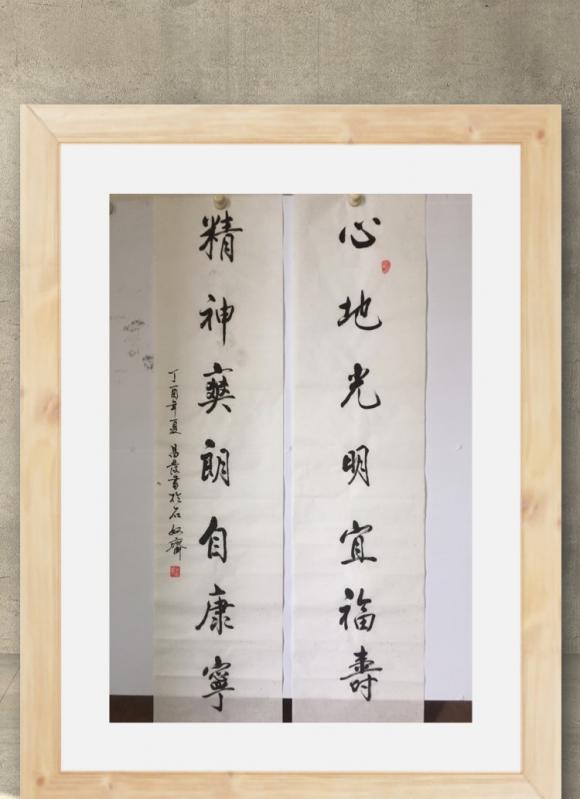 心地光明宜福壽
精神爽朗自康寧
丁酉年夏 昌發書於石齋